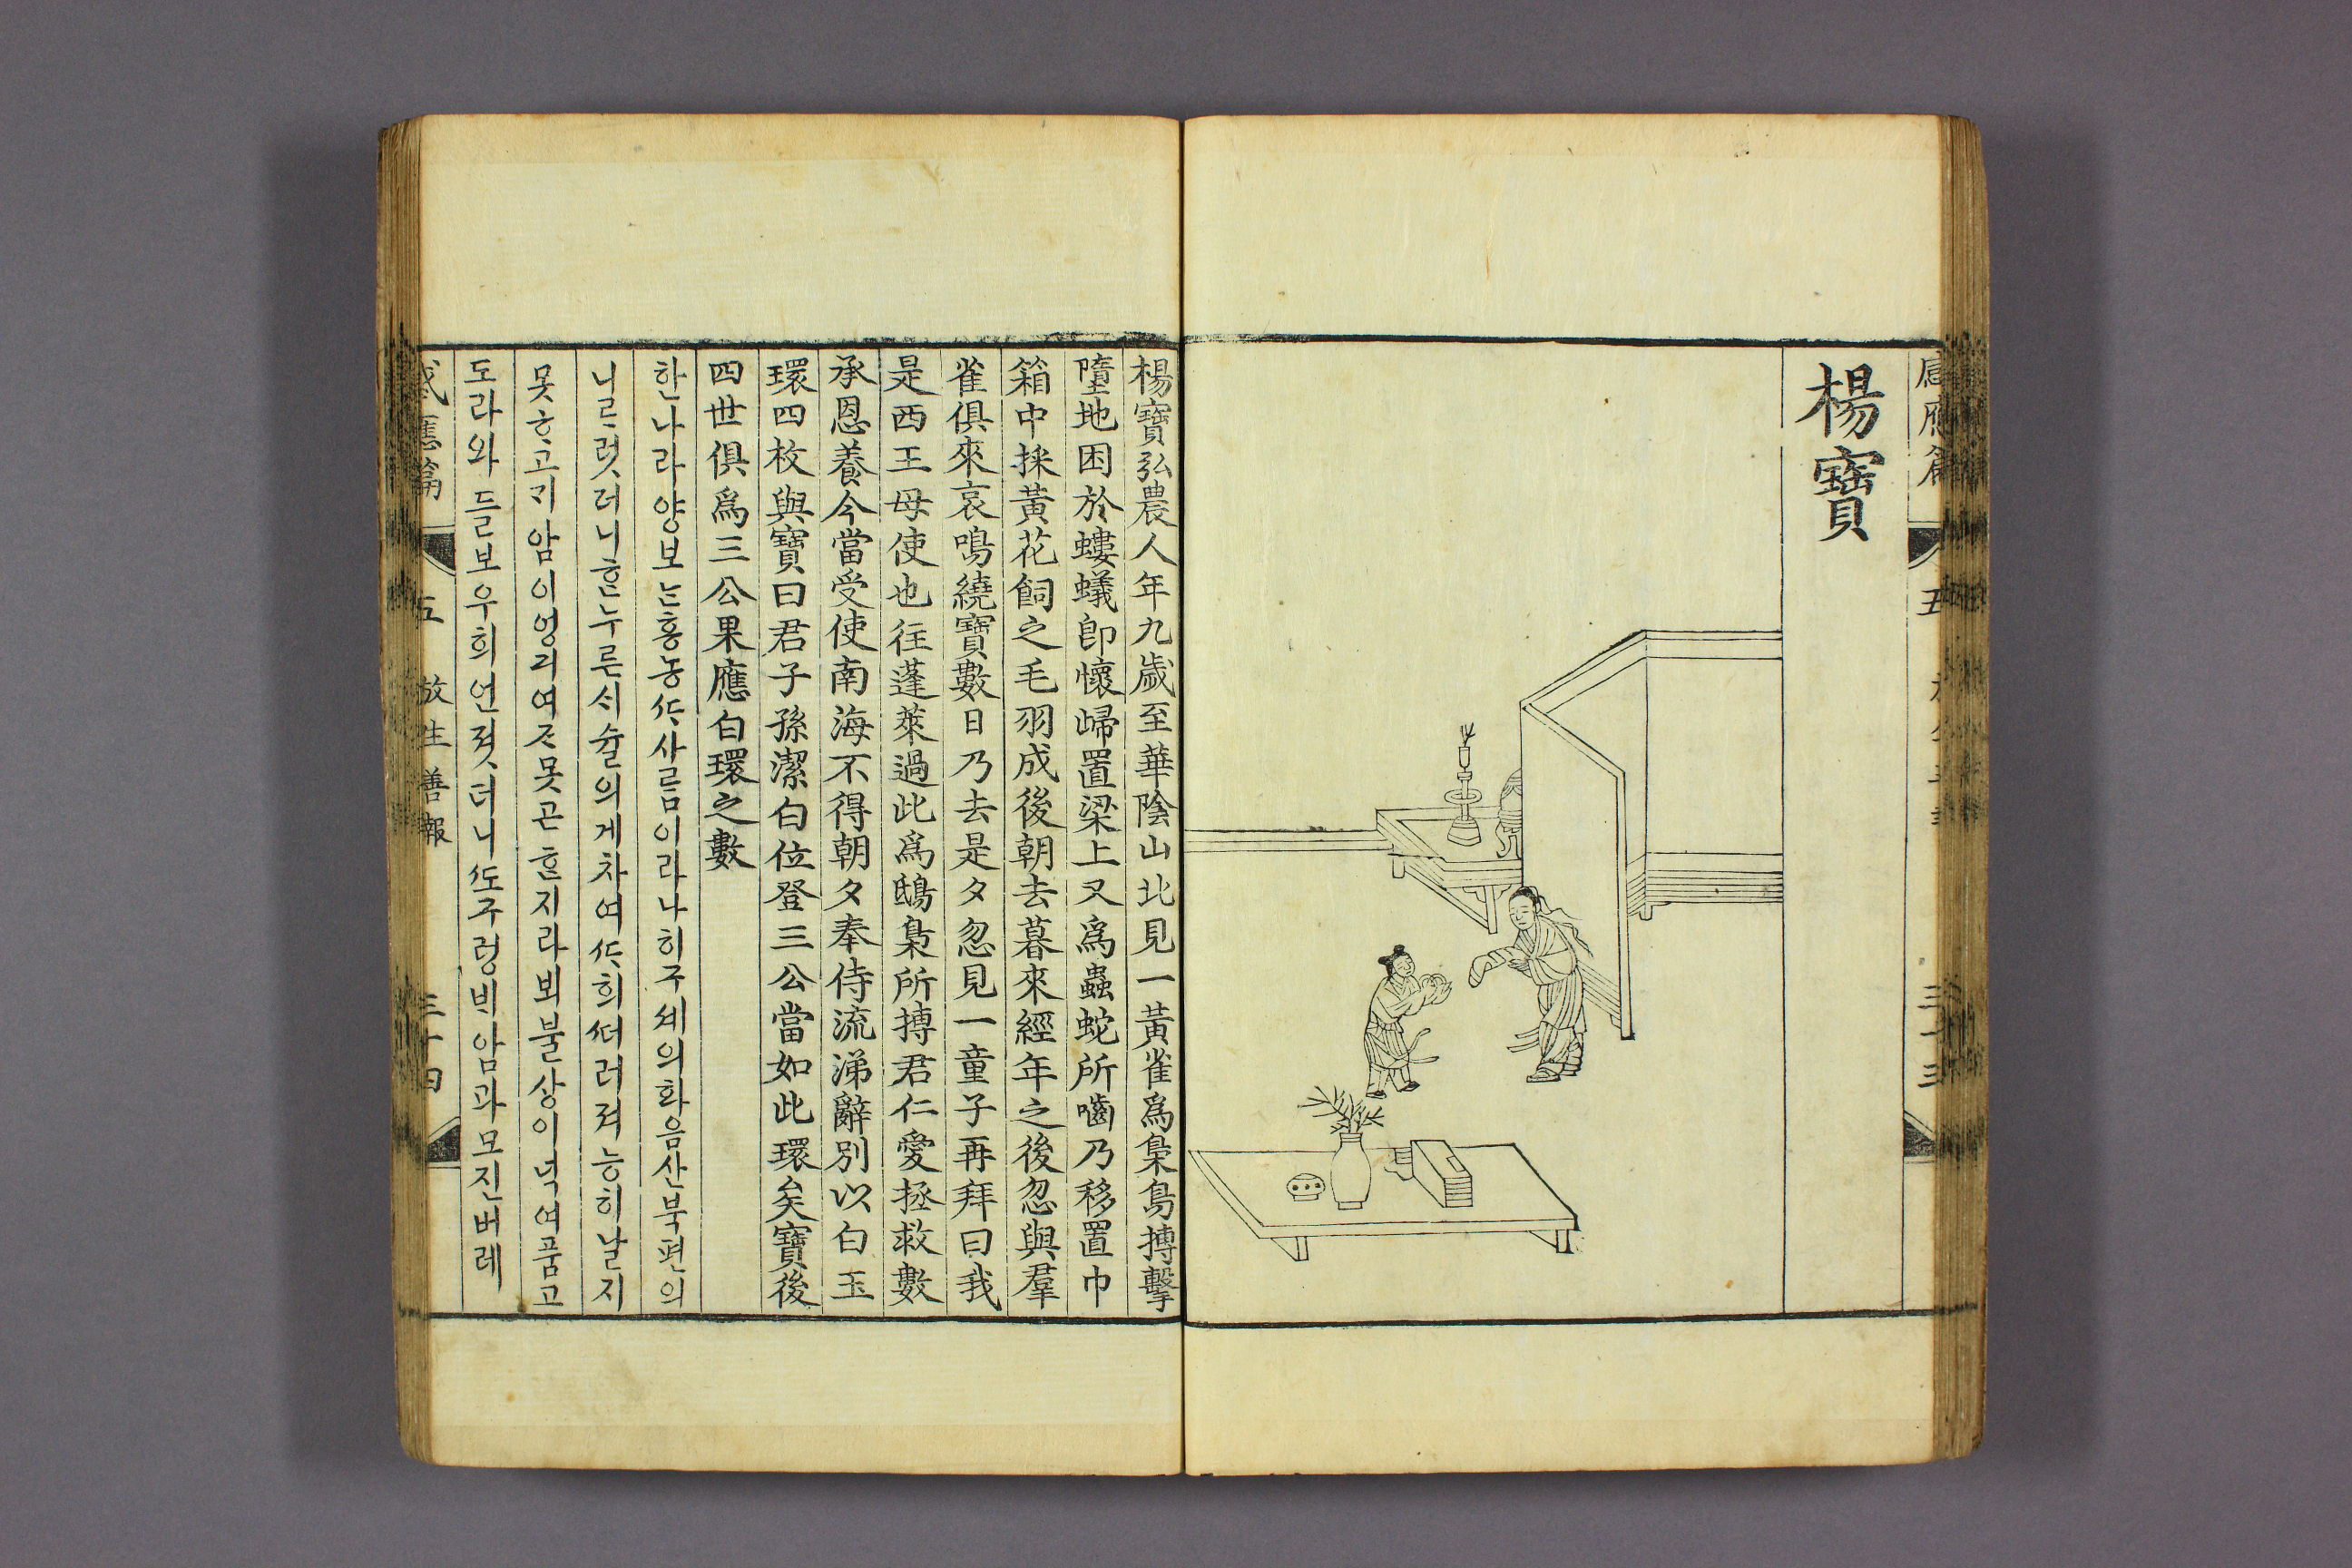 楊寶
楊寶弘農人年九歲至華陰山北見一黃雀爲梟鳥搏擊
墮地困於螻蟻卽懷歸置梁上又爲蟲蛇所嚙乃移置巾
箱中採黃花飼之毛羽成後朝去暮來經年之後忽與羣
雀俱來哀鳴繞寶數日乃去是夕忽見一童子再拜曰我
是西王母使也往蓬萊過此爲鴟梟所搏君仁愛拯救數
承恩養今當受使南海不得朝夕奉侍流涕辭別以白玉
環四枚與寶曰君子孫潔白位登三公當如此環矣寶後
四世俱爲三公果應白環之數
한나라양보ᄂᆞᆫ홍농ᄯᅡ사ᄅᆞᆷ이라나히구셰의화음산북편의
니ᄅᆞ럿더니ᄒᆞᆫ누른ᄉᆡ슐의게차여ᄯᅡ희ᄯᅥ러져능히날지
못ᄒᆞ고ᄀᆡ암이엉긔여ᄌᆞ못곤ᄒᆞᆫ지라뵈불상이녁여품고
도라와들보우희언졋더니ᄯᅩ구렁ᄇᆡ암과모진버레
感應篇 五 放生善報 三十四